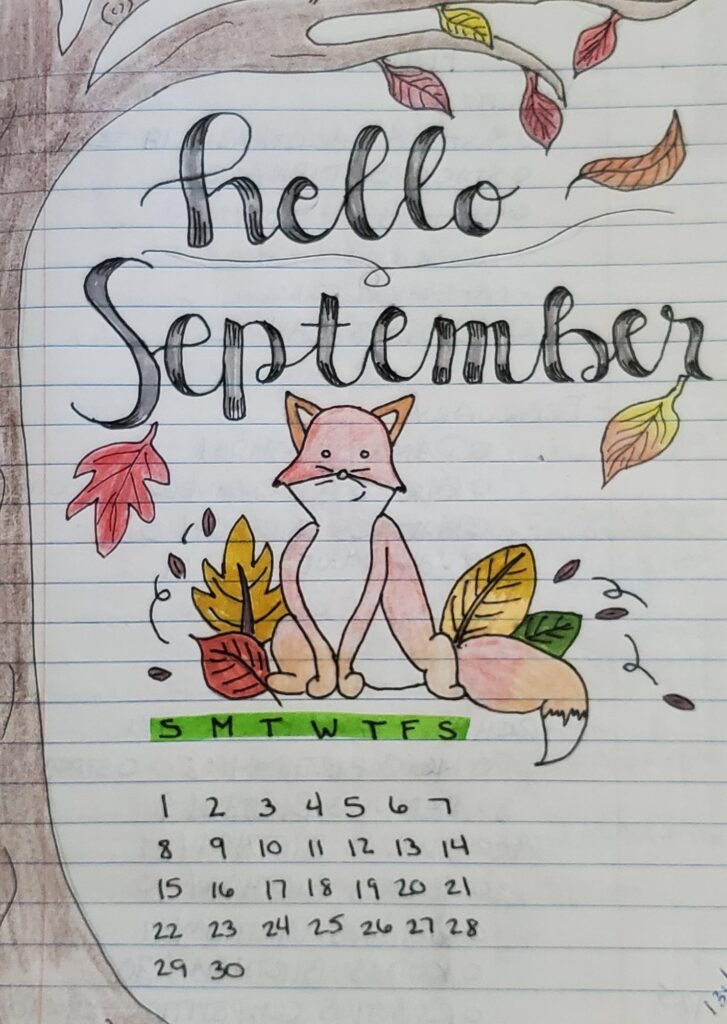 hello
September
S M T W T F S
1 2 3 4 5 6 7
8 9 10 11 12 13 14
15 16 17 18 19 20 21
22 23 24 25 26 27 28
29 30